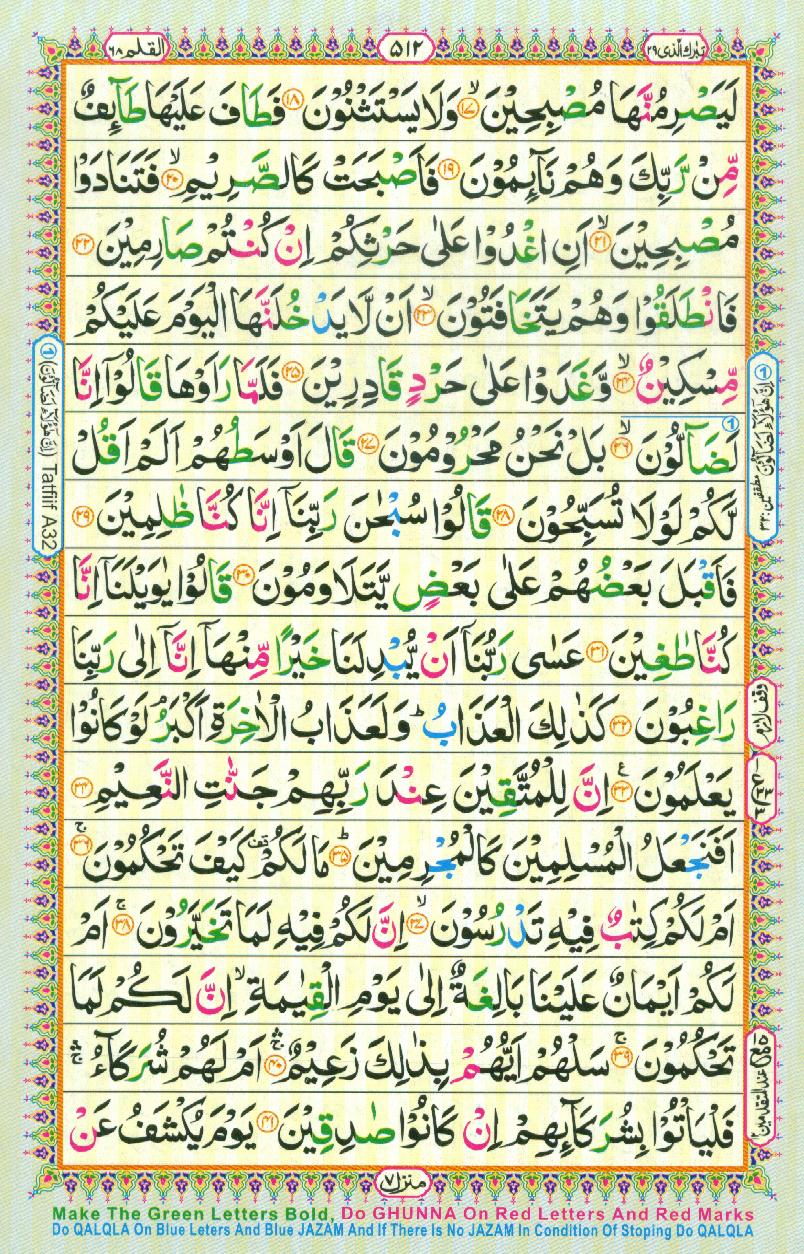 تبٰرك الّذى ٢٩
۵۱۲
القلم ٦٨
لَيَصْرِمُنَّهَا مُصْبِحِيْنَ ۙ‏﴿۱۷﴾ وَلَا يَسْتَثْنُوْنَ ﴿۱۸﴾ فَطَافَ عَلَيْهَا طَآٮِٕفٌ
مِّنْ رَّبِّكَ وَهُمْ نَآٮِٕمُوْنَ ﴿۱۹﴾ فَاَصْبَحَتْ كَالصَّرِيْمِ ۙ﴿۲۰﴾ فَتَنَادَوْا
مُصْبِحِيْنَ ۙ﴿۲۱﴾ اَنِ اغْدُوْا عَلٰى حَرْثِكُمْ اِنْ كُنْتُمْ صَارِمِيْنَ ﴿۲۲﴾
فَانْطَلَقُوْا وَهُمْ يَتَخَافَتُوْنَ ۙ﴿۲۳﴾ اَنْ لَّا يَدْخُلَنَّهَا الْيَوْمَ عَلَيْكُمْ
مِّسْكِيْنٌ ۙ﴿۲۴﴾ وَّغَدَوْا عَلٰى حَرْدٍ قَادِرِيْنَ ﴿۲۵﴾ فَلَمَّا رَاَوْهَا قَالُوْۤا اِنَّا
لَضَآلُّوْنَ ۙ﴿۲۶﴾ بَلْ نَحْنُ مَحْرُوْمُوْنَ ﴿۲۷﴾ قَالَ اَوْسَطُهُمْ اَلَمْ اَقُلْ
لَّكُمْ لَوْلَا تُسَبِّحُوْنَ ﴿۲۸﴾ قَالُوْا سُبْحٰنَ رَبِّنَاۤ اِنَّا كُنَّا ظٰلِمِيْنَ ﴿۲۹﴾
فَاَقْبَلَ بَعْضُهُمْ عَلٰى بَعْضٍ يَّتَلَاوَمُوْنَ ﴿۳۰﴾ قَالُوْا يٰوَيْلَنَاۤ اِنَّا
كُنَّا طٰغِيْنَ ﴿۳۱﴾ عَسٰى رَبُّنَاۤ اَنْ يُّبْدِلَنَا خَيْرًا مِّنْهَاۤ اِنَّاۤ اِلٰى رَبِّنَا
رَاغِبُوْنَ ﴿۳۲﴾ كَذٰلِكَ الْعَذَابُ ؕ وَلَعَذَابُ الْاٰخِرَةِ اَكْبَرُ ۘ لَوْ كَانُوْا
يَعْلَمُوْنَ ﴿۳۳﴾ اِنَّ لِلْمُتَّقِيْنَ عِنْدَ رَبِّهِمْ جَنّٰتِ النَّعِيْمِ ﴿۳۴﴾
اَفَنَجْعَلُ الْمُسْلِمِيْنَ كَالْمُجْرِمِيْنَ ؕ﴿۳۵﴾ مَا لَكُمْ كَيْفَ تَحْكُمُوْنَ ۚ﴿۳۶﴾
اَمْ لَكُمْ كِتٰبٌ فِيْهِ تَدْرُسُوْنَ ۙ﴿۳۷﴾ اِنَّ لَكُمْ فِيْهِ لَمَا تَخَيَّرُوْنَ ۚ﴿۳۸﴾ اَمْ
لَكُمْ اَيْمَانٌ عَلَيْنَا بَالِغَةٌ اِلٰى يَوْمِ الْقِيٰمَةِ ۙ اِنَّ لَكُمْ لَمَا
تَحْكُمُوْنَ ۚ﴿۳۹﴾ سَلْهُمْ اَيُّهُمْ بِذٰلِكَ زَعِيْمٌ ۚۛ﴿۴۰﴾ اَمْ لَهُمْ شُرَكَآءُ ۚۛ
فَلْيَاْتُوْا بِشُرَكَآٮِٕهِمْ اِنْ كَانُوْا صٰدِقِيْنَ ﴿۴۱﴾ يَوْمَ يُكْشَفُ عَنْ
① اِنَّ هٰۤؤُلَآءِ لَضَآلُّوْنَ مطففين: ٣٢
وقف لازم
① (اِنَّ هٰۤؤُلَآءِ لَضَآلُّوْنَ) Tatfiif A32
منزل ٧
Make The Green Letters Bold, Do GHUNNA On Red Letters And Red Marks
Do QALQLA On Blue Leters And Blue JAZAM And If There Is No JAZAM In Condition Of Stoping Do QALQLA